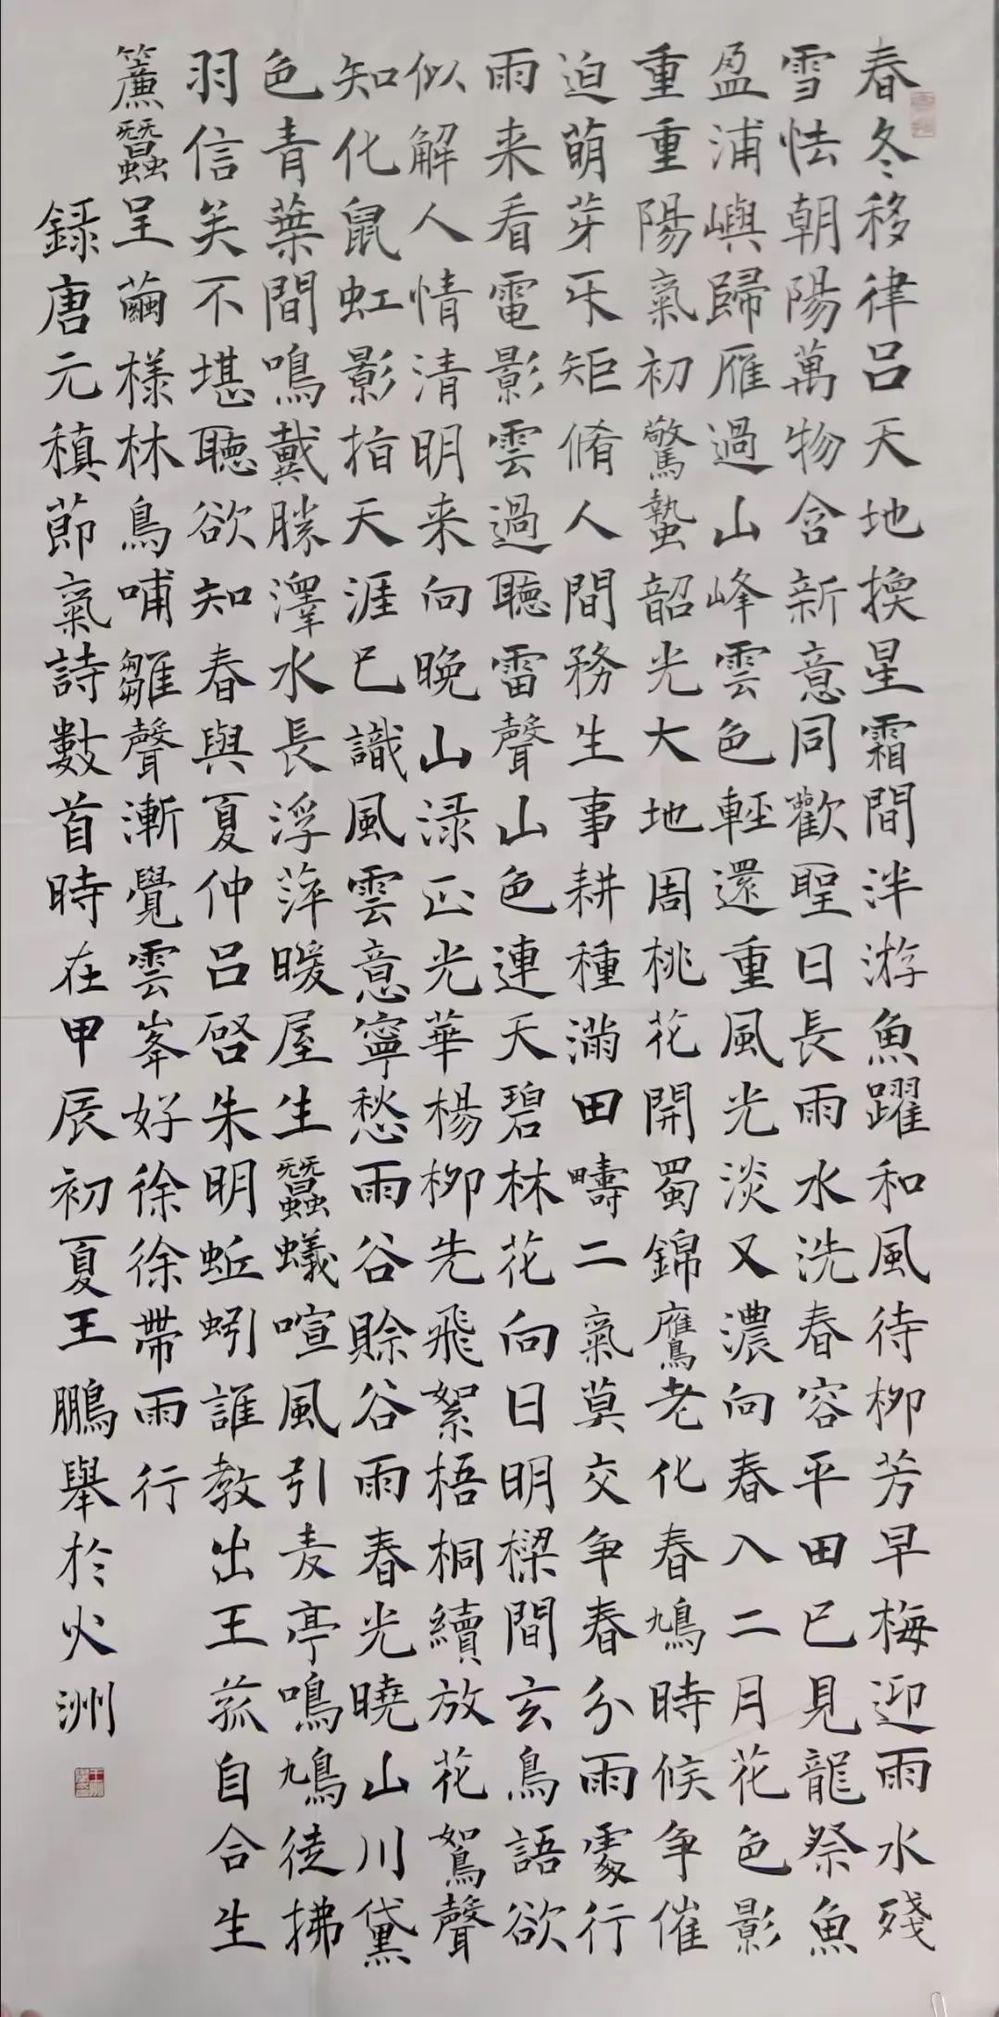 春冬移律吕天地換星霜間泮游魚躍和風待柳芳早梅迎雨水殘
雪怯朝陽萬物含新意同歡聖日長雨水洗春容平田已見龍祭魚
盈浦嶼歸雁過山峰雲色輕還重風光淡又濃向春入二月花色影
重重陽氣初驚蟄韶光大地周桃花開蜀錦鷹老化春鳩時候争催
迫萌芽𠀩矩脩人間務生事耕種滿田疇二氣莫交争春分雨處行
雨来看電影雲過聽雷聲山色連天碧林花向日明樑間玄鳥語欲
似解人情清明来向晚山渌正光華楊柳先飛絮梧桐續放花鴽聲
知化鼠虹影指天涯已識風雲意寧愁雨谷賒谷雨春光曉山川黛
色青葉間鳴戴勝澤水長浮萍暖屋生蠶蟻喧風引麦亭鳴鳩徒拂
羽信矣不堪聽欲知春與夏仲吕啓朱明蚯蚓誰教出王菰自合生
簾蠶呈繭様林鳥哺雛聲漸覺雲峯好徐徐帶雨行
録唐元稹節氣詩數首時在甲辰初夏王鵬舉於火洲